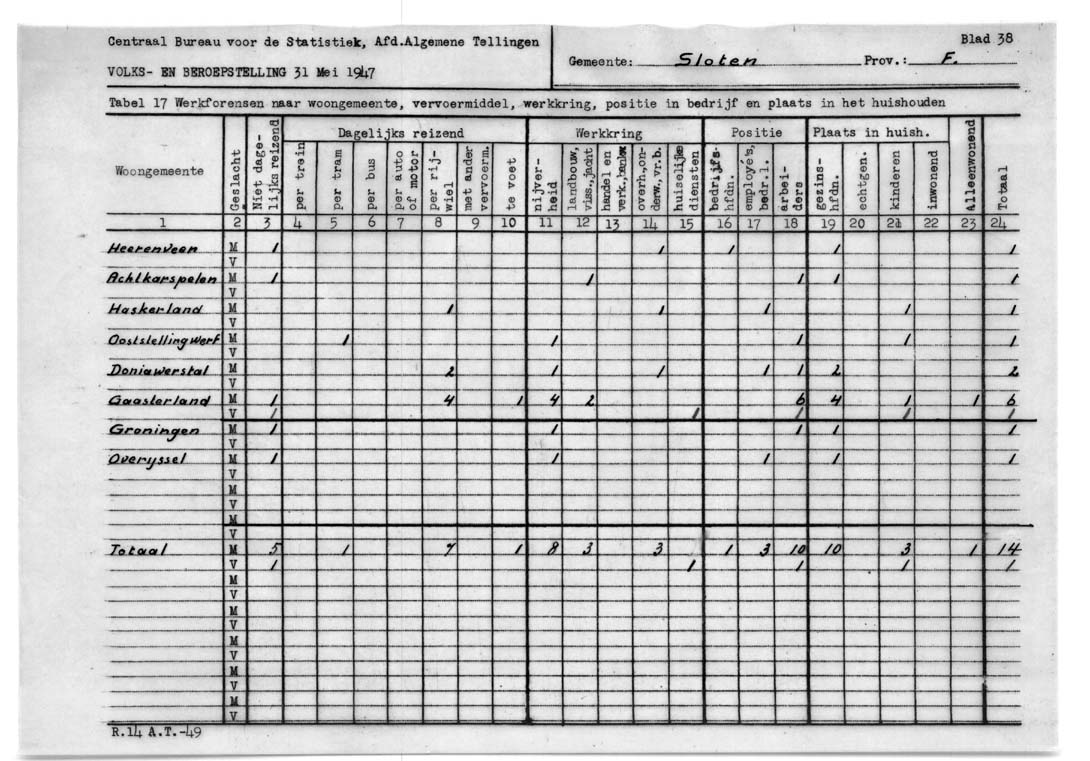 Centraal Bureau voor de Statistiek, Afd.Algemene Tellingen
VOLKS- EN BEROEPSTELLING 31 Mei 1947
Gemeente: Sloten Prov.: F.
Blad 38
Tabel 17 Werkforensen naar woongemeente, vervoermiddel, werkkring, positie in bedrijf en plaats in het huishouden
Woongemeente Geslacht Niet dage-lijks reizend Dagelijks reizend Werkkring Positie Plaats in huish. Alleenwonend Totaal
per trein per tram per bus per auto of motor per rij-wiel met ander vervoerm. te voet nijver-heid landbouw, viss., jacht handel en verk., bankw. overh., on-derw., vr.b. huiselijke diensten bedrijfs-hfdn. employé's, bedr.l. arbei-ders gezins-hfdn. echtgen. kinderen inwonend
1 2 3 4 5 6 7 8 9 10 11 12 13 14 15 16 17 18 19 20 21 22 23 24
Heerenveen M 1 1 1 1 1
V
Achtkarspelen M 1 1 1 1 1
V
Haskerland M 1 1 1 1 1
V
Ooststellingwerf M 1 1 1 1 1
V
Doniawerstal M 2 1 1 1 1 2 2
V
Gaasterland M 1 4 1 4 2 6 4 1 1 6
V 1 1 1 1 1
Groningen M 1 1 1 1 1
V
Overyssel M 1 1 1 1 1
V
M
V
M
V
Totaal M 5 1 7 1 8 3 3 1 3 10 10 3 1 14
V 1 1 1 1 1
M
V
M
V
M
V
M
V
M
V
R.14 A.T.-49